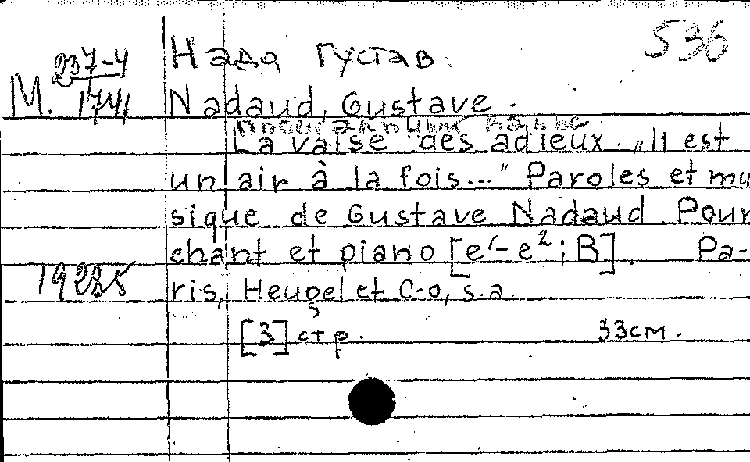 536
Надо Густав.
237-4
М. 1741
Nadaud, Gustave.
La valse des adieux. „Il est
un air à la fois..." Paroles et mu
sique de Gustave Nadaud. Pour
chant et piano [e'-e²; B]. Pa-
ris, Heugel et C-o, s.a.
[3] стр. 33см.